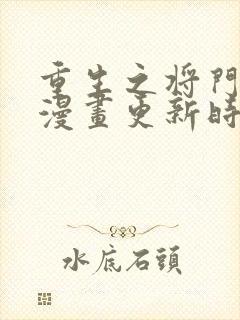 重生之将門
漫畫更新時
水底石頭